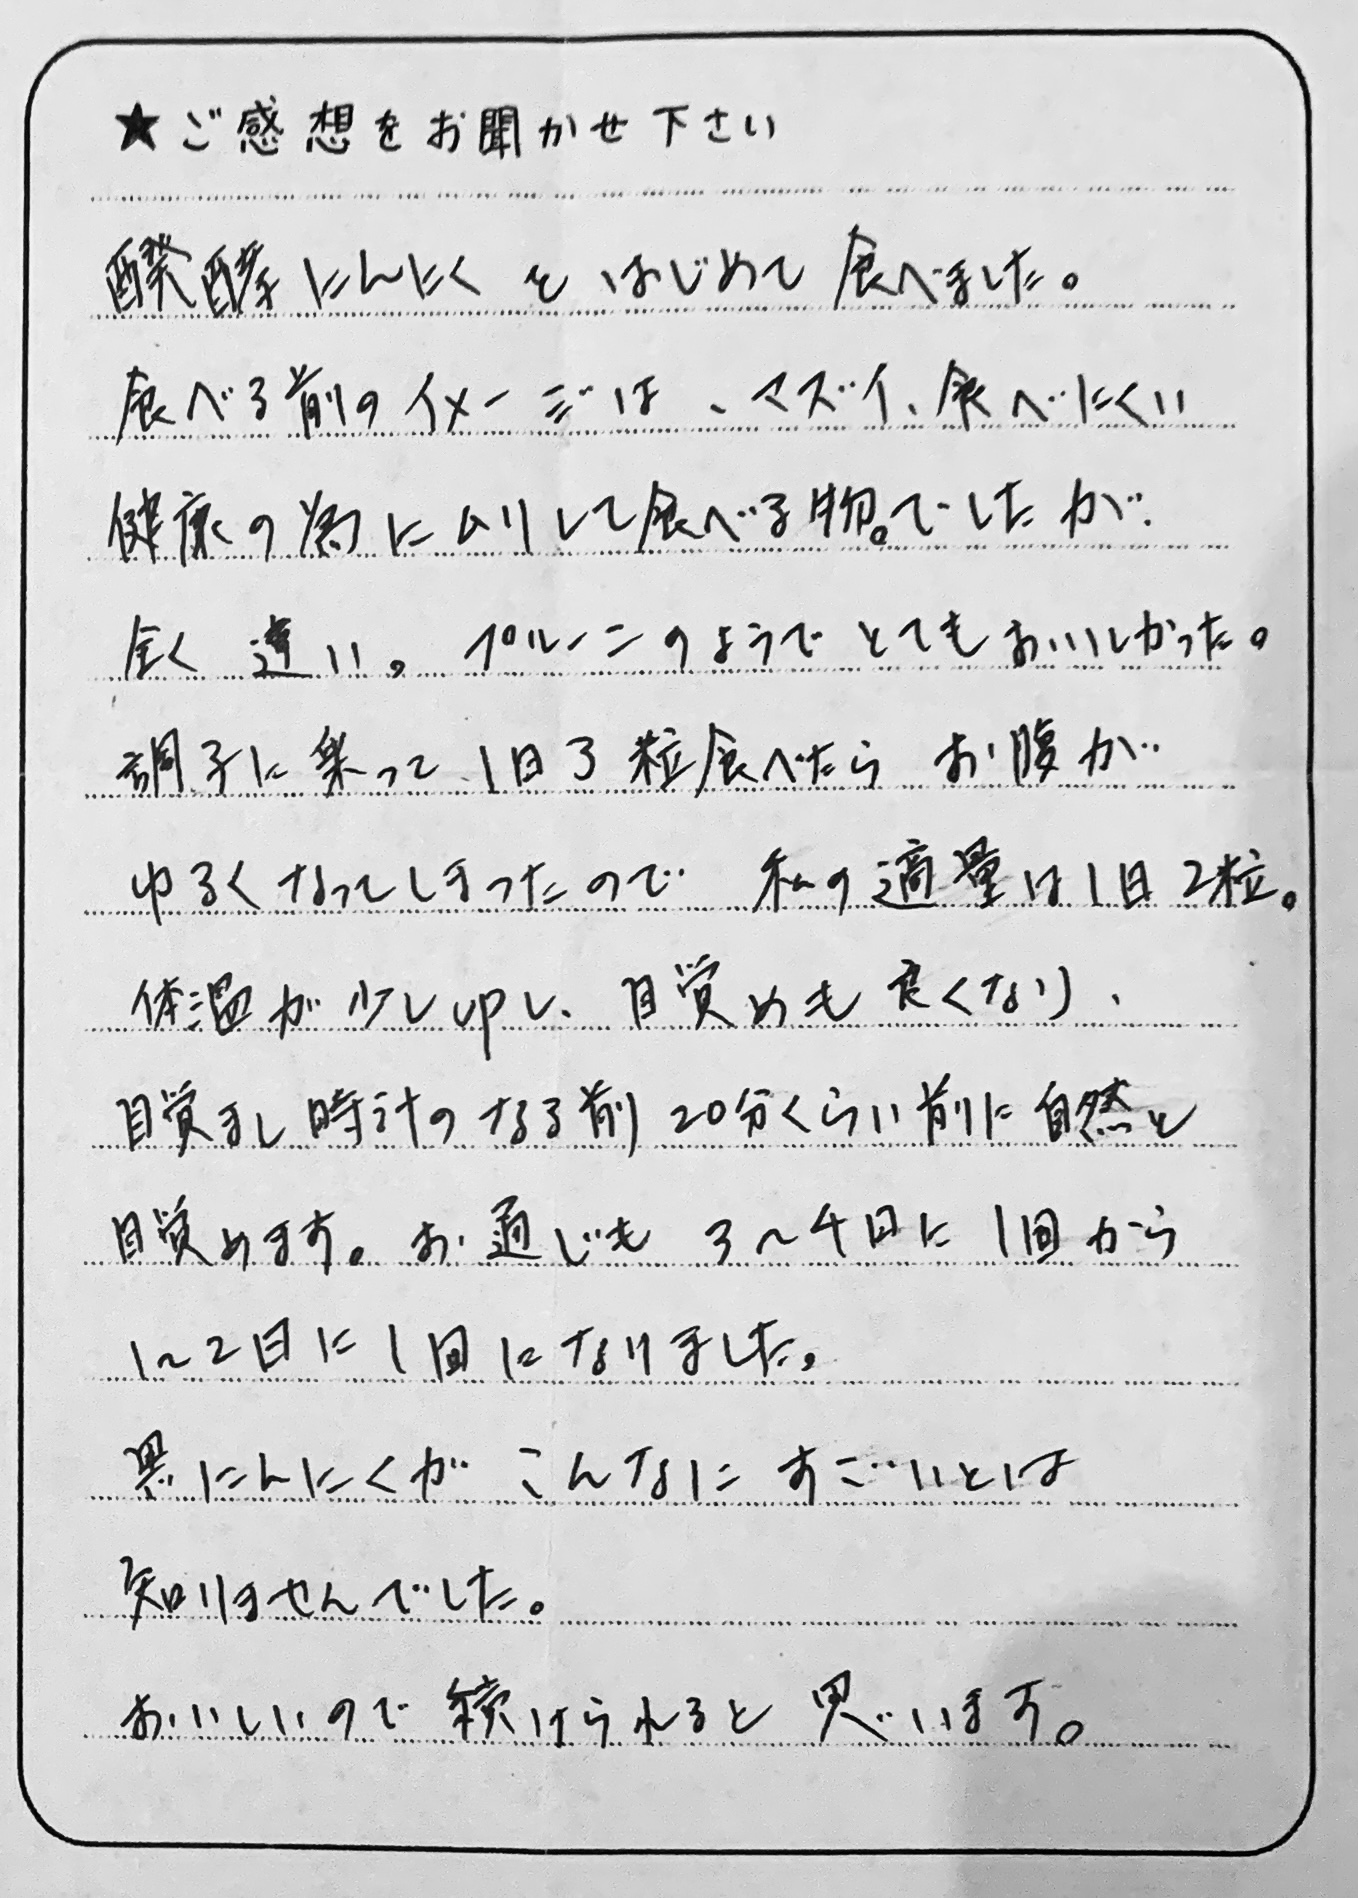 ★ご感想をお聞かせ下さい
醗酵にんにくをはじめて食べました。
食べる前のイメージは、マズイ、食べにくい
健康の為にムリして食べる物。でしたが
全く違い。プルーンのようでとてもおいしかった。
調子に乗って1日3粒食べたらお腹が
ゆるくなってしまったので私の適量は1日2粒。
体温が少しupし、目覚めも良くなり、
目覚まし時計のなる前20分くらい前に自然と
目覚めます。お通じも3〜4日に1回から
1〜2日に1回になりました。
黒にんにくがこんなにすごいとは
知りませんでした。
おいしいので続けられると思います。